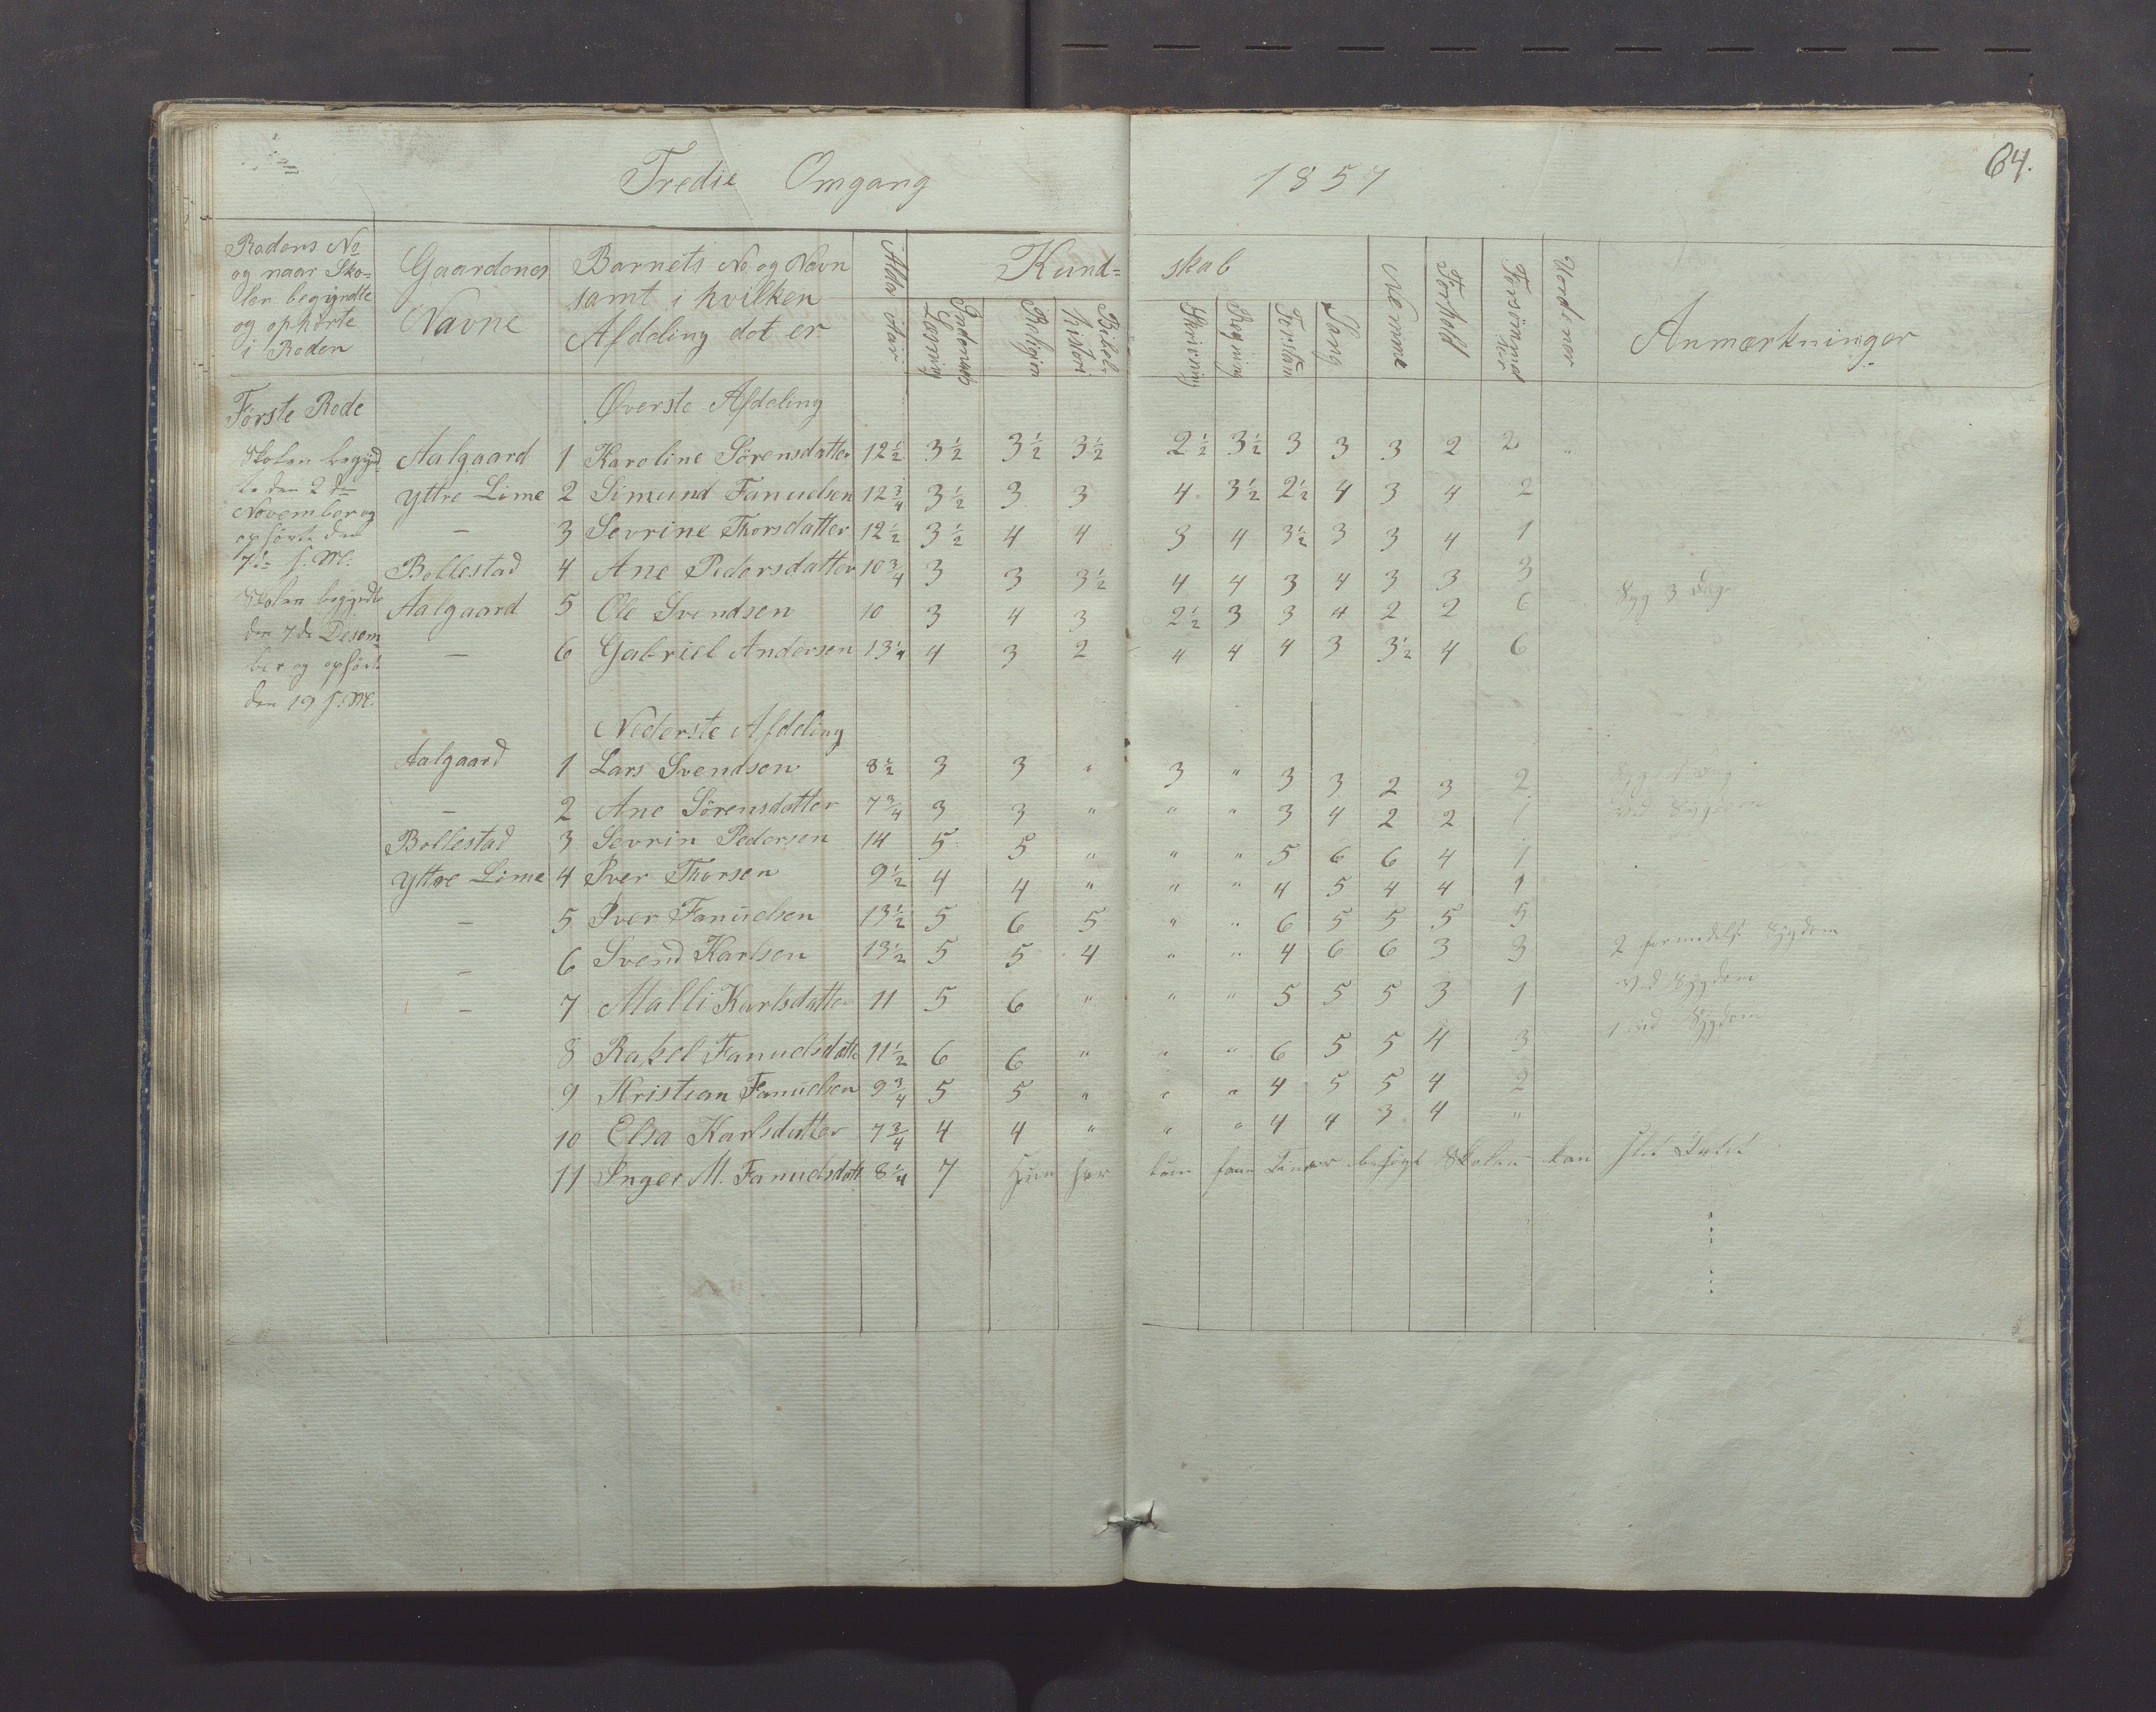 64.
Tredie Omgang 1857
Rodens No og naar Sko=
len begyndte
og ophörte
i Roden
Gaardenes
Navne
Barnets No og Navn
samt i hvilken
Afdeling det er
Alder Aar
Kund= skab
Indenads Læsning
Religion
Bibelhistorie
Skrivning
Regning
Forstan
Sang
Nemme
Forhold
Forsömmelser
Anmærkninger
Förste Rode
Skolen begynd
te den 2de
November og
ophörte den
7de s. M.
Skolen begyndte
den 7de Desem
ber og ophörte
den 19 s. M.
Överste Afdeling
Aalgaard 1 Karoline Sörensdatter 12½ 3½ 3½ 3½ 2½ 3½ 3 3 3 2 2 "
Yttre Lime 2 Simund Fanuelsen 12¾ 3½ 3 3 4 3½ 2½ 4 3 4 2
— 3 Sevrine Thorsdatter 12½ 3½ 4 4 3 4 3½ 3 3 4 1
Bollestad 4 Ane Pedersdatter 10¾ 3 3 3½ 4 4 3 4 3 3 3 Syg 3 Dag
Aalgaard 5 Ole Svendsen 10 3 4 3 2½ 3 3 4 2 2 6
— 6 Gabriel Andersen 13¼ 4 3 2 4 4 4 3 3½ 4 6
Nederste Afdeling
Aalgaard 1 Lars Svendsen 8½ 3 3 " 3 " 3 3 2 3 2 Syg Dag
— 2 Ane Sörensdatter 7¾ 3 3 " " " 3 4 2 2 1 ved Sygdom
Bollestad 3 Sevrin Pedersen 14 5 5 " " " 5 6 6 4 1
Yttre Lime 4 Iver Thorsen 9½ 4 4 " " " 4 5 4 4 1
— 5 Iver Fanuelsen 13½ 5 6 5 " " 6 5 5 5 5
— 6 Svend Karlsen 13½ 5 5 4 " " 4 6 6 3 3 2 formedelst Sygdom
— 7 Malli Karlsdatter 11 5 6 " " " 5 5 5 3 1 ved Sygdom
8 Rakel Fanuelsdatte 11½ 6 6 " " " 6 5 5 4 3 1 ved Sygdom
9 Kristian Fanuelsen 9¾ 5 5 " " " 4 5 5 4 2
10 Elsa Karlsdatter 7¾ 4 4 " " " 4 4 3 4 "
11 Inger M. Fanuelsdatt 8¼ 7 Hun har kun besögt Skolen kan slet Intet